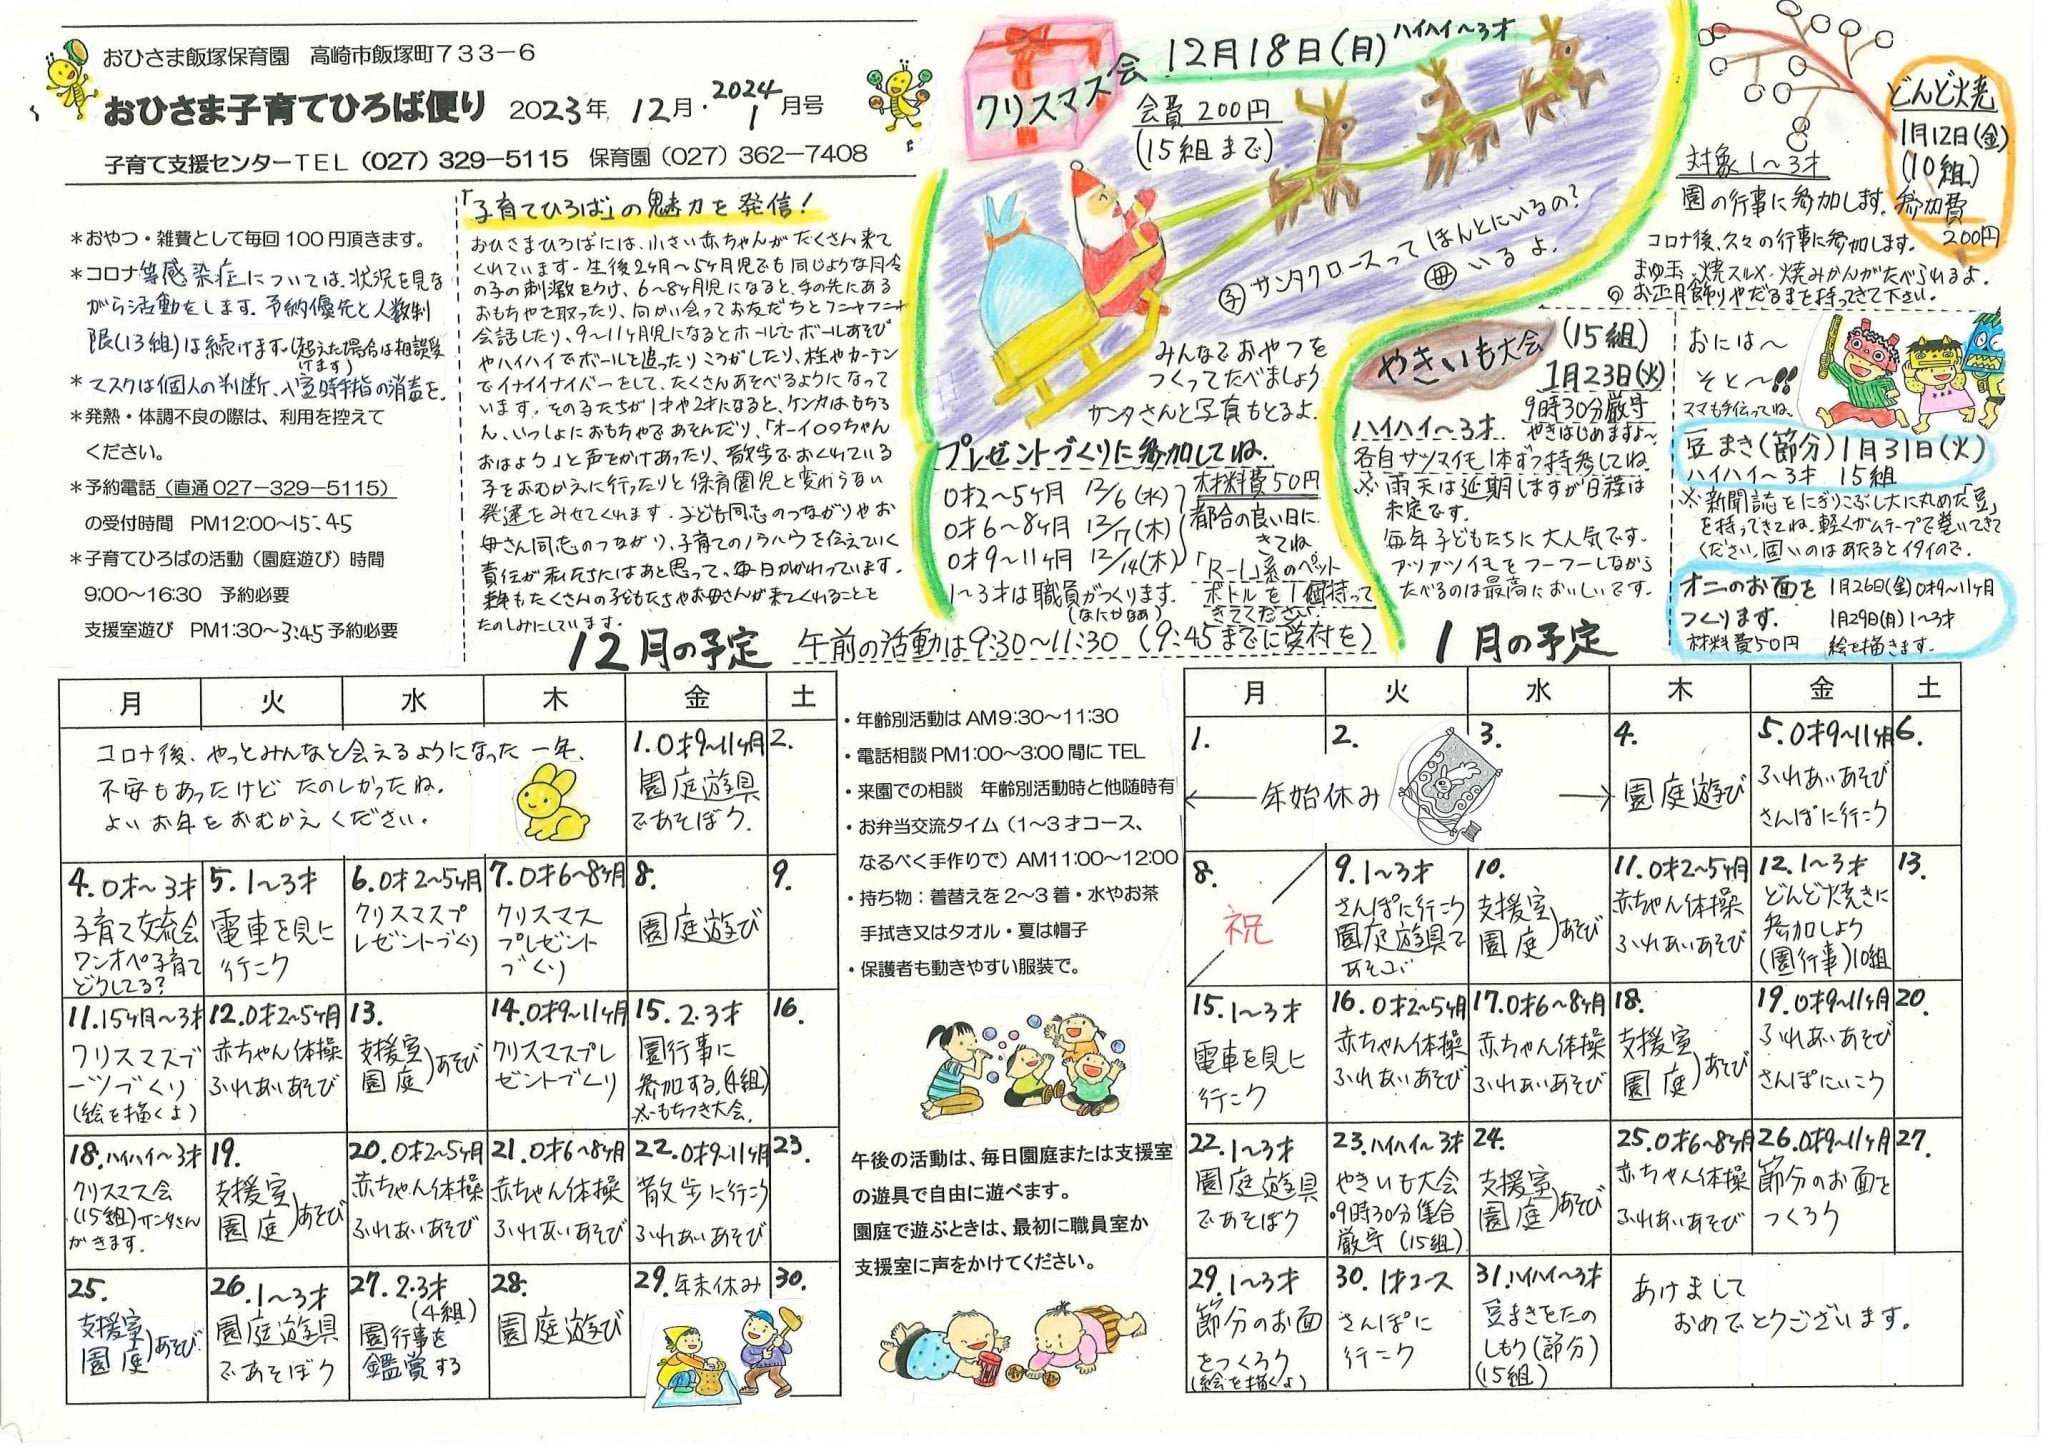 おひさま飯塚保育園 高崎市飯塚町733-6
おひさま子育てひろば便り 2023年 12月・2024 1月号
子育て支援センターTEL(027)329-5115 保育園(027)362-7408
*おやつ・雑費として毎回100円頂きます。
*コロナ等感染症については、状況を見な
がら活動をします。予約優先と人数制
限(13組)は続けます。(超えた場合は相談受
けます)
*マスクは個人の判断、入室時手指の消毒を。
*発熱・体調不良の際は、利用を控えて
ください。
*予約電話(直通027-329-5115)
の受付時間 PM12:00~15:45
*子育てひろばの活動(園庭遊び)時間
9:00~16:30 予約必要
支援室遊び PM1:30~3:45予約必要
「子育てひろば」の魅力を発信!
おひさまひろばには、小さい赤ちゃんがたくさん来て
くれています。生後2ヶ月~5ヶ月児でも同じような月令
の子の刺激をうけ、6~8ヶ月児になると、手の先にある
おもちゃを取ったり、向かい会ってお友だちとフニャフニャ
会話したり、9~11ヶ月児になるとホールでボールあそび
やハイハイでボールを追ったりころがしたり、柱やカーテン
でイナイイナイバーをして、たくさんあそべるようになって
います。その子たちが1才や2才になると、ケンカはもちろ
ん、いっしょにおもちゃであそんだり、「オーイ○○ちゃん
おはよう」と声をかけあったり、散歩でおくれている
子をおむかえに行ったりと保育園児と変わらない
発達をみせてくれます。子ども同志のつながりやお
母さん同志のつながり、子育てのノウハウを伝えていく
責任が私たちにはあると思って、毎日かかわっています。
来年もたくさんの子どもたちやお母さんが来てくれることを
たのしみにしています。
クリスマス会 12月18日(月) ハイハイ~3才
会費200円
(15組まで)
子 サンタクロースってほんとにいるの?
母 いるよ。
みんなでおやつを
つくってたべましょう
サンタさんと写真もとるよ。
プレゼントづくりに参加してね。
0才2~5ヶ月 12/6(水)
0才6~8ヶ月 12/7(木)
0才9~11ヶ月 12/14(木)
材料費50円
都合の良い日に
きてね
1~3才は職員がつくります。
(なにかなぁ)
「R-1」系のペット
ボトルを1個持って
きてください
どんど焼
1月12日(金)
(10組)
参加費
200円
対象1~3才
園の行事に参加します。
コロナ後、久々の行事に参加します。
まゆ玉・焼スルメ・焼みかんがたべられるよ。
お正月飾りやだるまを持ってきて下さい。
やきいも大会 (15組)
1月23日(火)
9時30分厳守
やきはじめますよ~
ハイハイ~3才
各自サツマイモ1本ずつ持参してね。
※雨天は延期しますが日程は
未定です。
毎年子どもたちに大人気です。
アツアツイモをフーフーしながら
たべるのは最高においしいです。
おには~
そと~!!
ママも手伝ってね。
豆まき(節分)1月31日(火)
ハイハイ~3才 15組
※新聞誌をにぎりこぶし大に丸めた「豆」
を持ってきてね。軽くガムテープで巻いてきて
ください。固いのはあたるとイタイので。
オニのお面を
つくります。
材料費50円
1月26日(金)0才9~11ヶ月
1月29日(月)1~3才
絵を描きます。
12月の予定 午前の活動は9:30~11:30(9:45までに受付を)
1月の予定
月 火 水 木 金 土
コロナ後、やっとみんなと会えるようになった一年、
不安もあったけどたのしかったね。
よいお年をおむかえください。
1.0才9~11ヶ月
園庭遊具
であそぼう。
2.
4.0才~3才
子育て交流会
ワンオペ子育て
どうしてる?
5.1~3才
電車を見に
行こう
6.0才2~5ヶ月
クリスマスプ
レゼントづくり
7.0才6~8ヶ月
クリスマス
プレゼント
づくり
8.
園庭遊び
9.
11.15ヶ月~3才
クリスマスブ
ーツづくり
(絵を描くよ)
12.0才2~5ヶ月
赤ちゃん体操
ふれあいあそび
13.
支援室
園庭)あそび
14.0才9~11ヶ月
クリスマスプレ
ゼントづくり
15.2・3才
園行事に
参加する。(4組)
※もちつき大会
16.
18.ハイハイ~3才
クリスマス会
(15組)サンタさん
がきます。
19.
支援室
園庭)あそび
20.0才2~5ヶ月
赤ちゃん体操
ふれあいあそび
21.0才6~8ヶ月
赤ちゃん体操
ふれあいあそび
22.0才9~11ヶ月
散歩に行こう
ふれあいあそび
23.
25.
支援室
園庭)あそび
26.1~3才
園庭遊具
であそぼう
27.2・3才
(4組)
園行事を
鑑賞する
28.
園庭遊び
29.年末休み
30.
・年齢別活動はAM9:30~11:30
・電話相談PM1:00~3:00間にTEL
・来園での相談 年齢別活動時と他随時有
・お弁当交流タイム(1~3才コース、
なるべく手作りで)AM11:00~12:00
・持ち物:着替えを2~3着・水やお茶
手拭き又はタオル・夏は帽子
・保護者も動きやすい服装で。
午後の活動は、毎日園庭または支援室
の遊具で自由に遊べます。
園庭で遊ぶときは、最初に職員室か
支援室に声をかけてください。
月 火 水 木 金 土
1.
2.
3.
年始休み
4.
園庭遊び
5.0才9~11ヶ月
ふれあいあそび
さんぽに行こう
6.
8.
祝
9.1~3才
さんぽに行こう
園庭遊具で
あそぶ
10.
支援室
園庭)あそび
11.0才2~5ヶ月
赤ちゃん体操
ふれあいあそび
12.1~3才
どんど焼きに
参加しよう
(園行事)10組
13.
15.1~3才
電車を見に
行こう
16.0才2~5ヶ月
赤ちゃん体操
ふれあいあそび
17.0才6~8ヶ月
赤ちゃん体操
ふれあいあそび
18.
支援室
園庭)あそび
19.0才9~11ヶ月
ふれあいあそび
さんぽにいこう
20.
22.1~3才
園庭遊具
であそぼう
23.ハイハイ~3才
やきいも大会
・9時30分集合
厳守(15組)
24.
支援室
園庭)あそび
25.0才6~8ヶ月
赤ちゃん体操
ふれあいあそび
26.0才9~11ヶ月
節分のお面を
つくろう
27.
29.1~3才
節分のお面
をつくろう
(絵を描くよ)
30.1才コース
さんぽに
行こう
31.ハイハイ~3才
豆まきをたの
しもう(節分)
(15組)
あけまして
おめでとうございます。